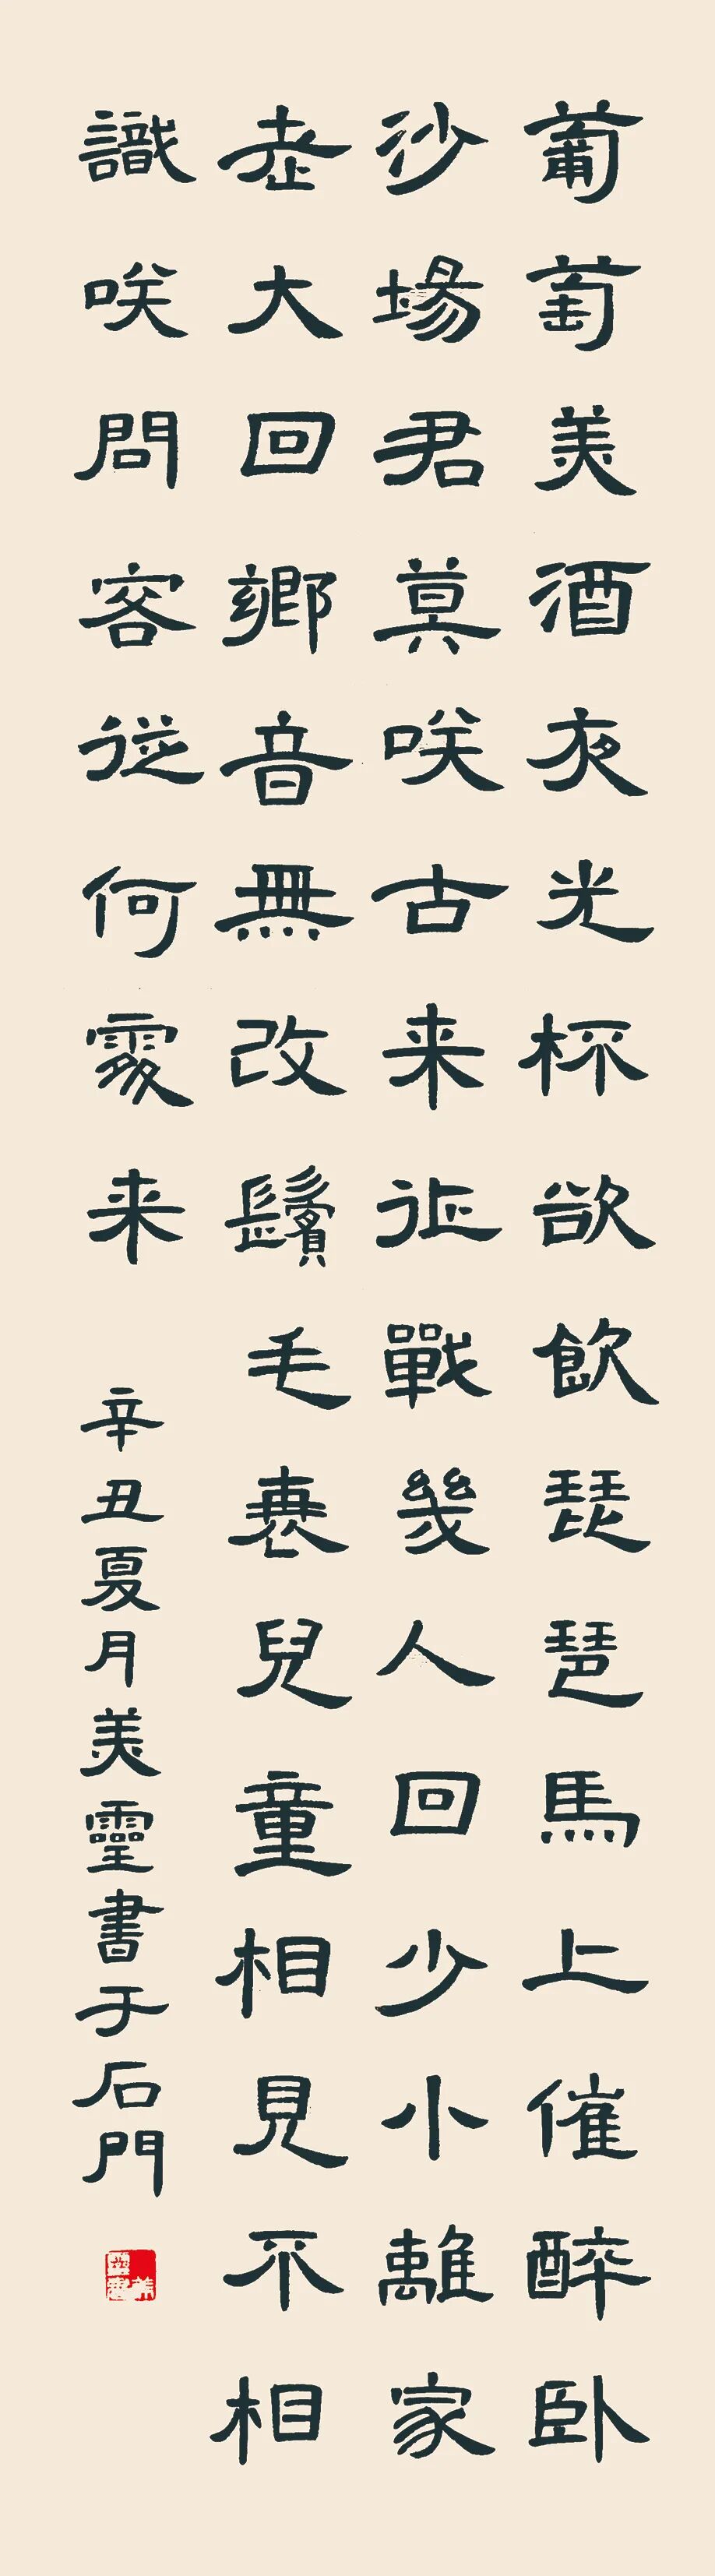 葡萄美酒夜光杯欲飲琵琶馬上催醉卧
沙場君莫咲古来征戰幾人回少小離家
老大回鄉音無改鬢毛衰兒童相見不相
識咲問客從何處来
辛丑夏月美靈書于石門